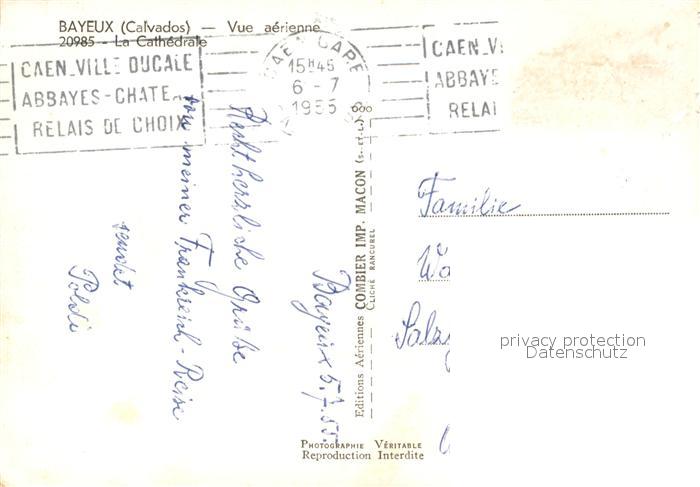 BAYEUX (Calvados) — Vue aérienne
20985 - La Cathédrale
CAEN_VILLE DUCALE
ABBAYES-CHATE
RELAIS DE CHOIX
CAEN GARE
15H45
6 - 7
1955
CAEN_VI
ABBAYE
RELAI
Bayeux 5.7.55.
Recht herzliche Grüße
von meiner Frankreich-Reise
sendet
Poldi
Editions Aériennes COMBIER IMP. MACON (S.-ET-L.)
CLICHÉ RANCUREL
Familie
Wa
Salz
privacy protection
Datenschutz
PHOTOGRAPHIE VÉRITABLE
Reproduction Interdite